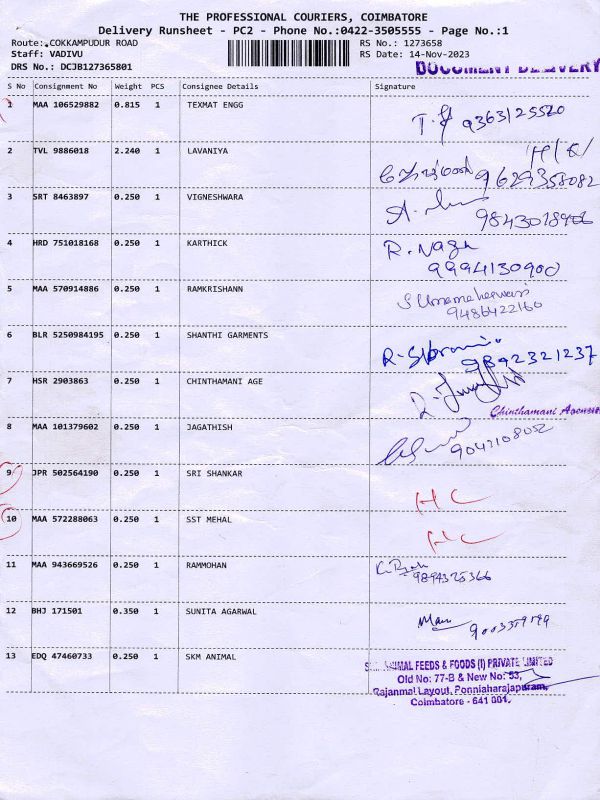 THE PROFESSIONAL COURIERS, COIMBATORE
Delivery Runsheet - PC2 - Phone No.:0422-3505555 - Page No.:1
Route: COKKAMPUDUR ROAD
RS No.: 1273658
Staff: VADIVU
RS Date: 14-Nov-2023
DRS No.: DCJB127365801
DOCUMENT DELIVERY
S No Consignment No Weight PCS Consignee Details Signature
1 MAA 106529882 0.815 1 TEXMAT ENGG
9363125520
2 TVL 9886018 2.240 1 LAVANIYA
9629358082
3 SRT 8463897 0.250 1 VIGNESHWARA
4 HRD 751018168 0.250 1 KARTHICK R. Naga
9994130900
5 MAA 570914886 0.250 1 RAMKRISHANN
9486422160
6 BLR 5250984195 0.250 1 SHANTHI GARMENTS
9892321237
7 HSR 2903863 0.250 1 CHINTHAMANI AGE
Chinthamani Agencies
8 MAA 101379602 0.250 1 JAGATHISH
9047108052
9 JPR 502564190 0.250 1 SRI SHANKAR HC
10 MAA 572288063 0.250 1 SST MEHAL HC
11 MAA 943669526 0.250 1 RAMMOHAN
9894325366
12 BHJ 171501 0.350 1 SUNITA AGARWAL
13 EDQ 47460733 0.250 1 SKM ANIMAL
ANIMAL FEEDS & FOODS (I) PRIVATE LIMITED
Old No: 77-B & New No: 53,
Rajanmal Layout, Ponniaharajapuram,
Coimbatore - 641 001.